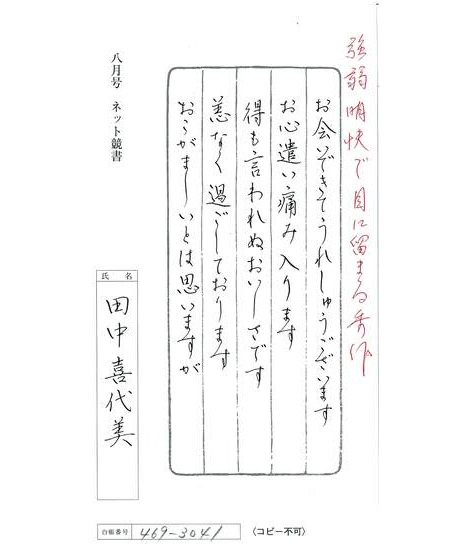 強弱明快で目に留まる秀作
お会いできてうれしゅうございます
お心遣い痛み入ります
得も言われぬおいしさです
恙なく過ごしております
おこがましいとは思いますが
八月号 ネット競書
氏名
田中喜代美
台帳番号 469-3041
〈コピー不可〉